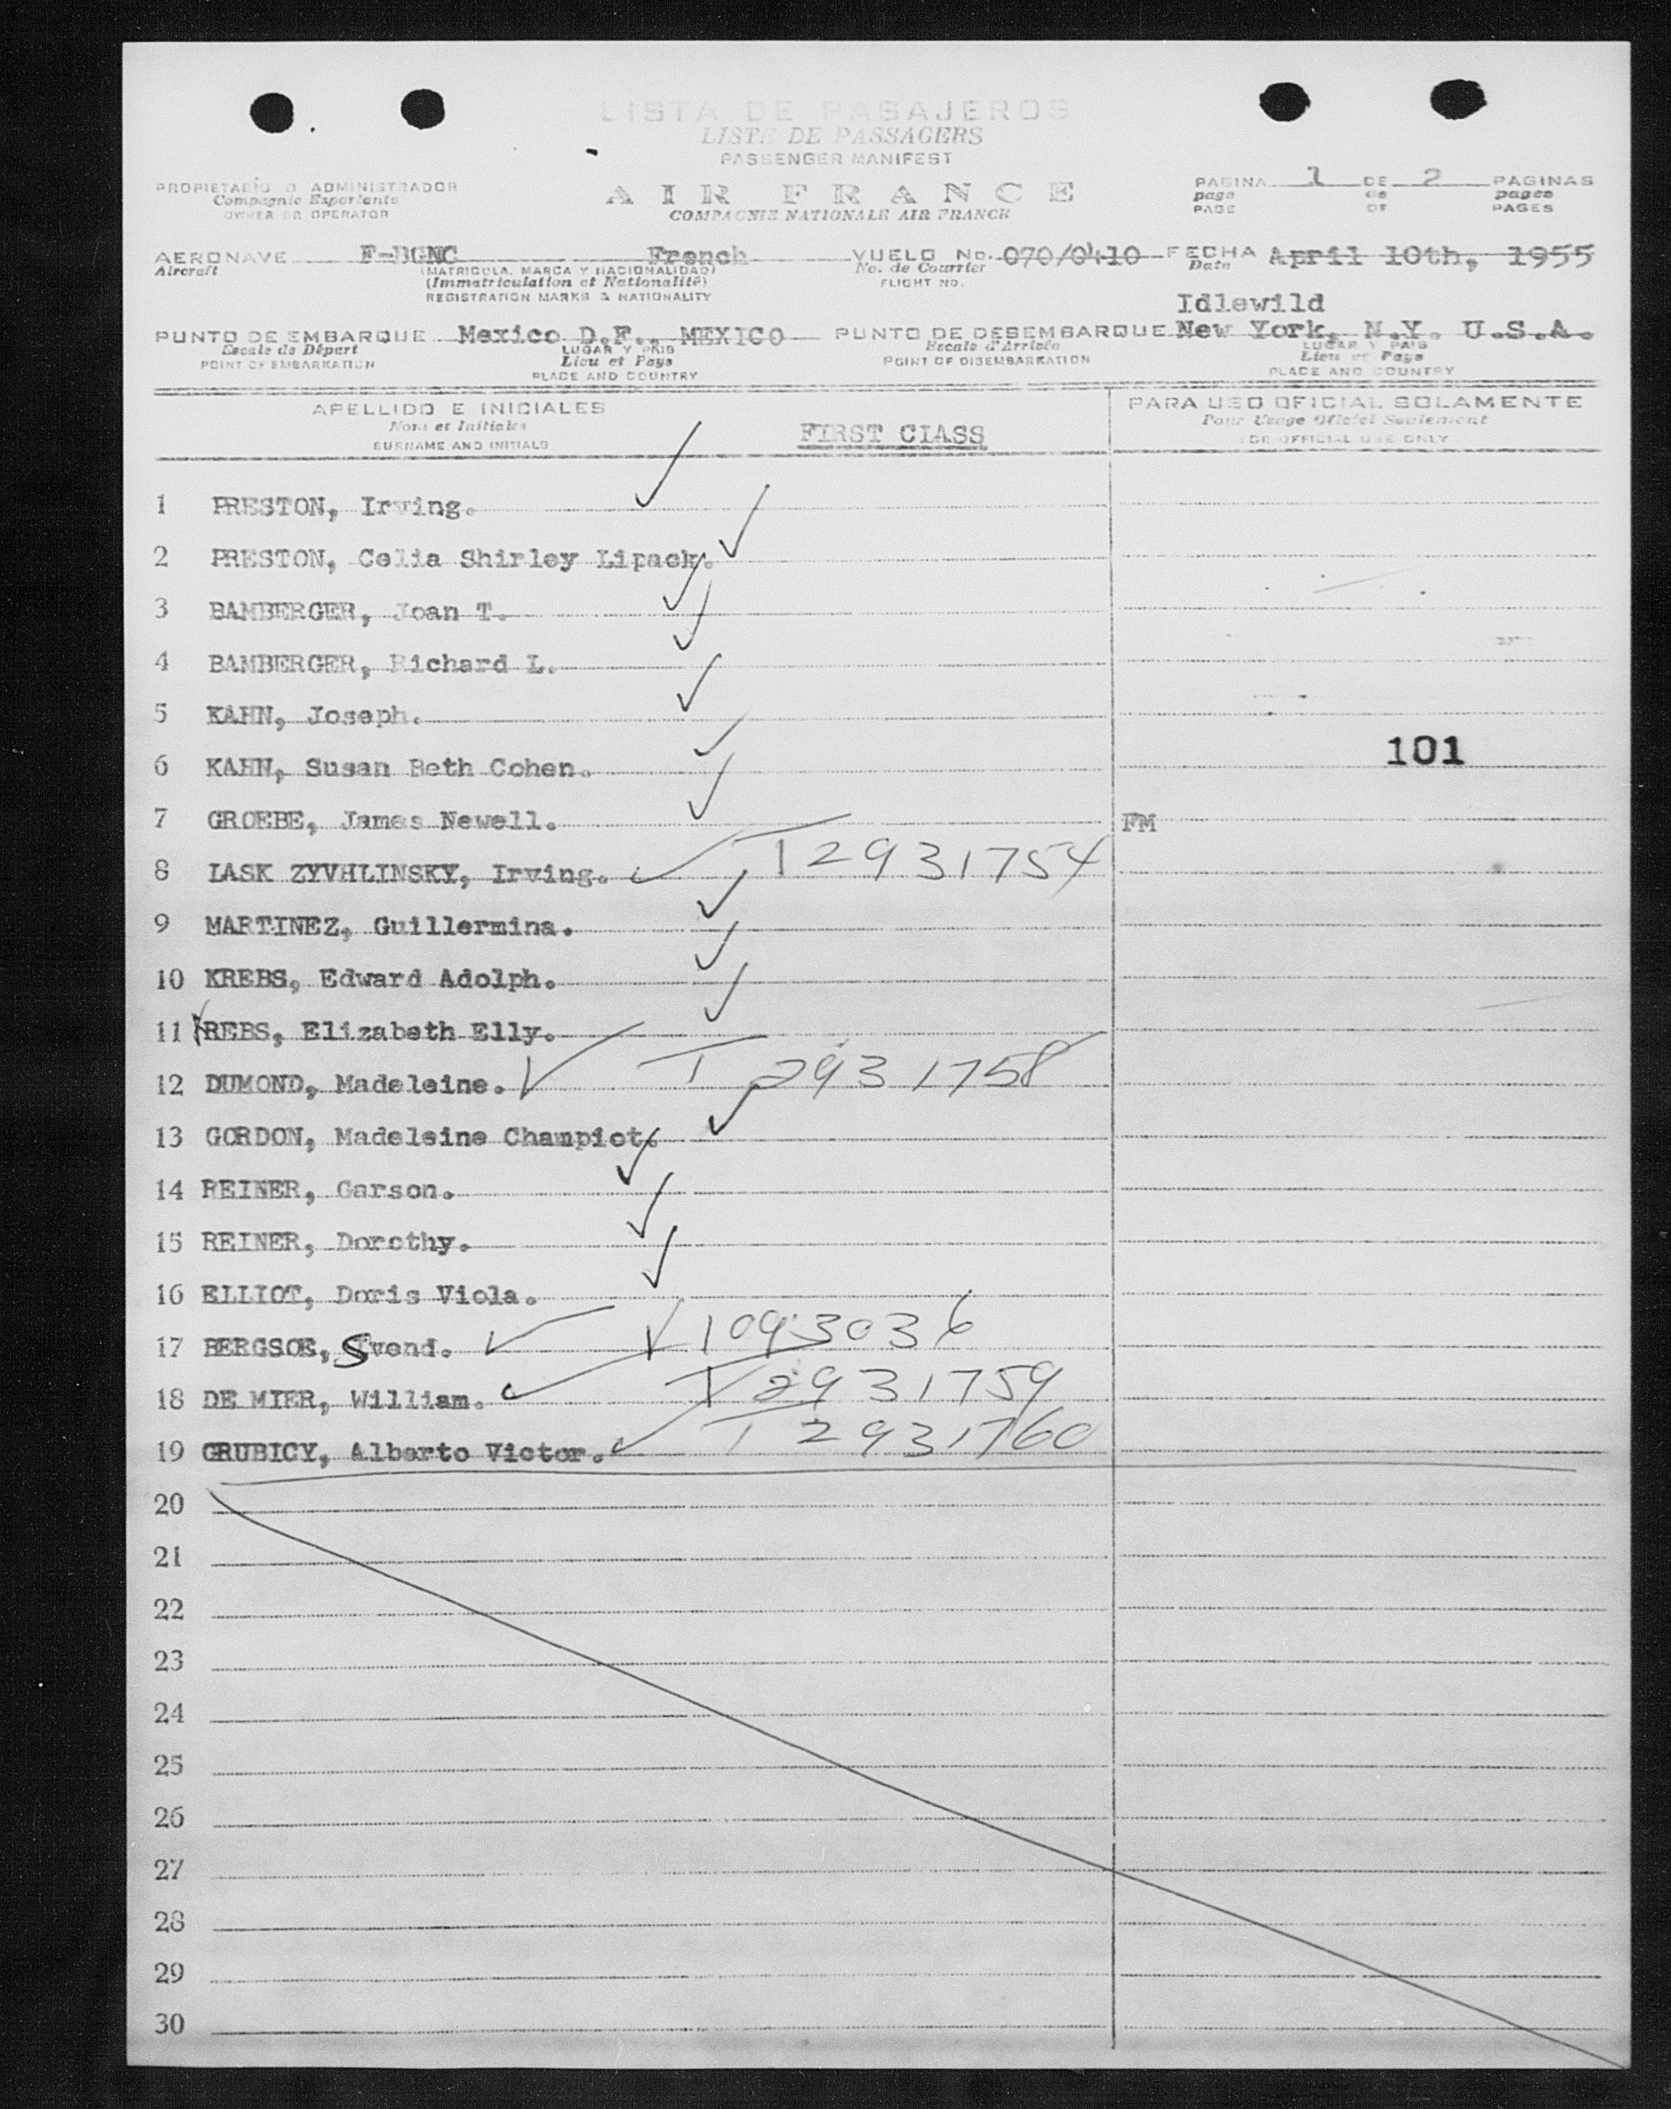 LISTA DE PASAJEROS
LISTE DE PASSAGERS
PASSENGER MANIFEST
PROPIETARIO O ADMINISTRADOR
Compagnie Exportante
OWNER OR OPERATOR
AIR FRANCE
COMPAGNIE NATIONALE AIR FRANCE
PAGINA 1 DE 2 PAGINAS
page de pages
PAGE OF PAGES
AERONAVE F-BGNC French VUELO No. 070/0410 FECHA April 10th, 1955
Aircraft (MATRICULA, MARCA Y NACIONALIDAD) No. de Courrier Date
(Immatriculation et Nationalité) FLIGHT NO.
REGISTRATION MARKS & NATIONALITY
Idlewild
PUNTO DE EMBARQUE Mexico D.F., MEXICO PUNTO DE DESEMBARQUE New York, N.Y. U.S.A.
Escale de Départ LUGAR Y PAIS Escale d'Arrivée LUGAR Y PAIS
POINT OF EMBARKATION Lieu et Pays POINT OF DISEMBARKATION Lieu et Pays
PLACE AND COUNTRY PLACE AND COUNTRY
APELLIDO E INICIALES PARA USO OFICIAL SOLAMENTE
Nom et Initiales FIRST CLASS Pour Usage Officiel Seulement
SURNAME AND INITIALS FOR OFFICIAL USE ONLY
1 PRESTON, Irving. ✓
2 PRESTON, Celia Shirley Lipack. ✓
3 BAMBERGER, Joan T. ✓
4 BAMBERGER, Richard L. ✓
5 KAHN, Joseph. ✓
6 KAHN, Susan Beth Cohen. ✓ 101
7 GROEBE, James Newell. ✓ FM
8 LASK ZYVHLINSKY, Irving. ✓ T 2931754
9 MARTINEZ, Guillermina. ✓
10 KREBS, Edward Adolph. ✓
11 KREBS, Elizabeth Elly. ✓
12 DUMOND, Madeleine. ✓ T 2931758
13 GORDON, Madeleine Champiot. ✓
14 REINER, Carson. ✓
15 REINER, Dorothy. ✓
16 ELLIOT, Doris Viola. ✓
17 BERGSOE, Svend. ✓ V 1093036
18 DE MIER, William. ✓ T 2931759
19 GRUBICY, Alberto Victor. ✓ T 2931760
20
21
22
23
24
25
26
27
28
29
30